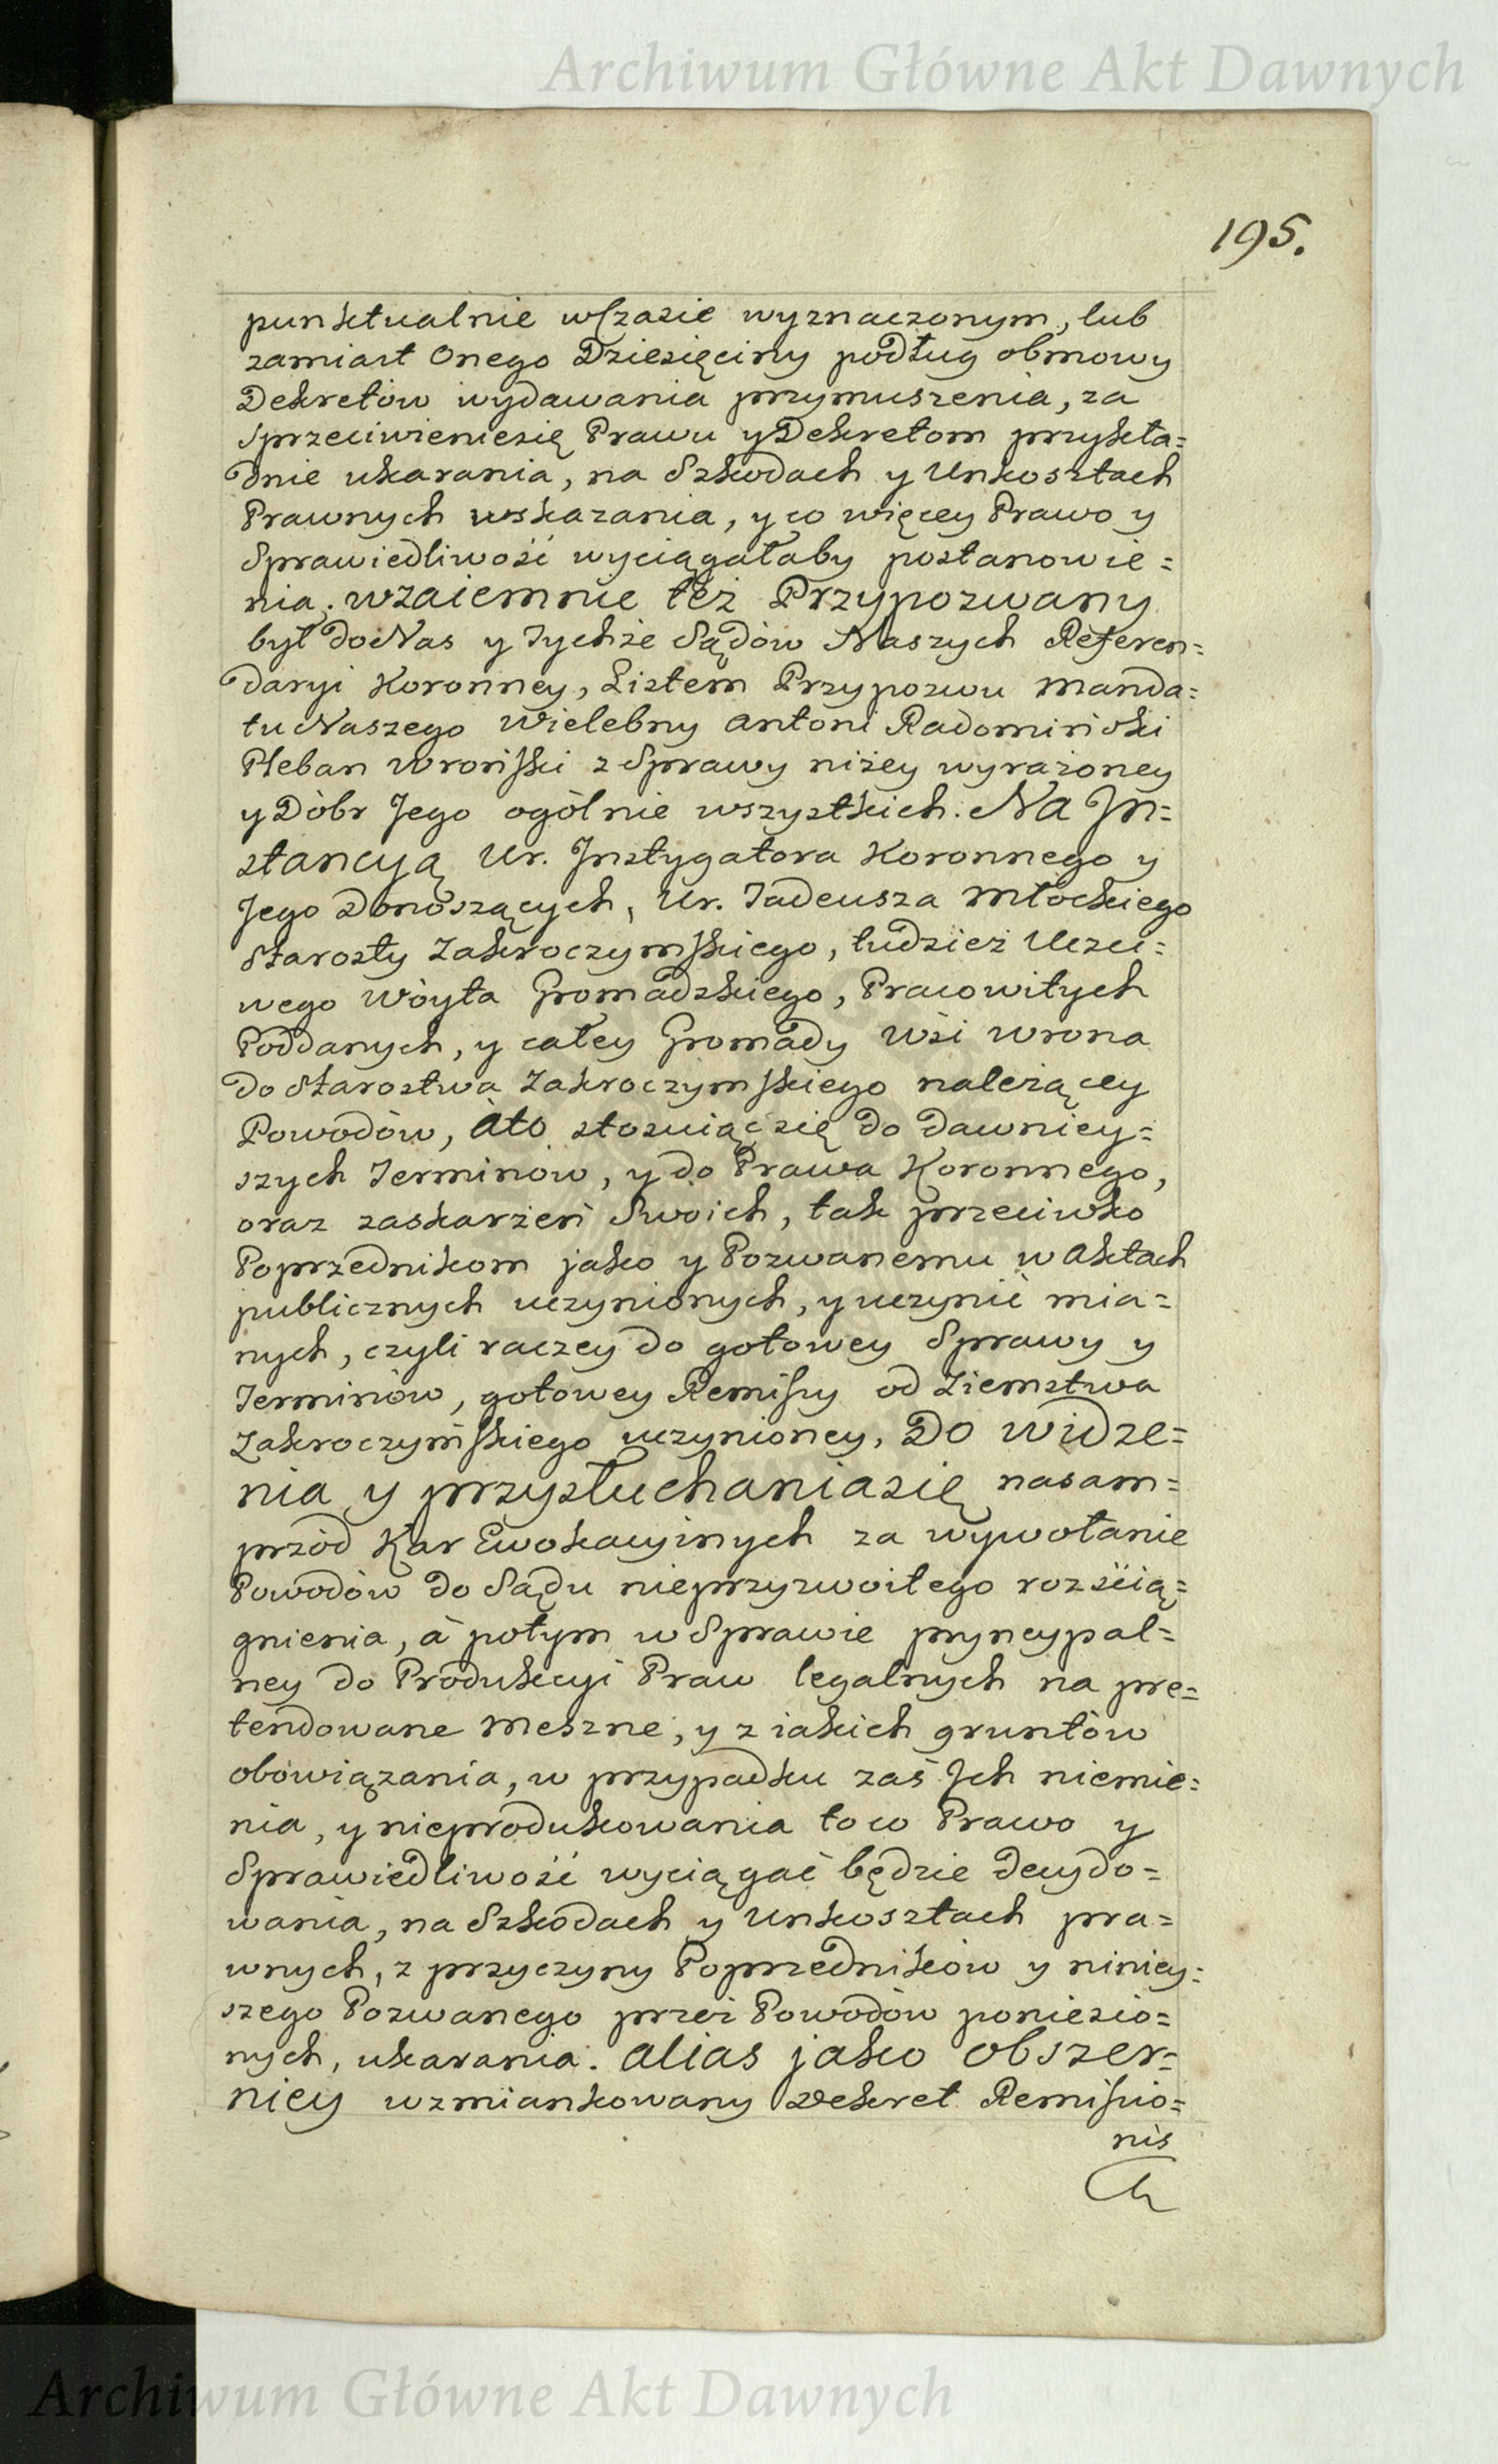 Archiwum Główne Akt Dawnych
195.
punktualnie wCzasie wyznaczonym, lub
zamiast Onego Dziesięciny podług obmowy
Dekretów wydawania przymuszenia, za
Sprzeciwieniesię Prawu y Dekretom przykła=
dnie ukarania, na Szkodach y Unkosztach
Prawnych wskazania, y co więcey Prawo y
Sprawiedliwość wyciągałaby postanowie=
nia. wzaiemnie też Przypozwany
był do Nas y Tychże Sądów Naszych Referen=
daryi Koronney, Listem Przypozwu Manda=
tu Naszego Wielebny Antoni Radomiński
Pleban Wroński z Sprawy niżey wyrażoney
y Dóbr Jego ogólnie wszystkich. Na In=
stancyą Ur. Instygatora Koronnego y
Jego Donoszących, Ur. Tadeusza Młockiego
Starosty Zakroczymskiego, tudzież Uczci=
wego Wóyta Gromadzkiego, Pracowitych
Poddanych, y całey Gromady Wsi Wrona
do Starostwa Zakroczymskiego należącey
Powodów, Ato stosuiąc się do dawniey=
szych Terminów, y do Prawa Koronnego,
oraz zaskarżeń Swoich, tak przeciwko
Poprzednikom jako y Pozwanemu w Aktach
publicznych uczynionych, y uczynić mia=
nych, czyli raczey do gotowey Sprawy y
Terminów, gotowey Remissy od Ziemstwa
Zakroczymskiego uczynioney, Do widze=
nia y przysłuchaniasię nasam=
przód Kar Ewokacyinych za wywołanie
Powodów do Sądu nieprzyzwoitego rozścią=
gnienia, à potym w Sprawie pryncypal=
ney do Produkcyi Praw legalnych na pre=
tendowane Meszne, y z iakich gruntów
obowiązania, w przypadku zaś Ich niemie=
nia, y nieprodukowania to co Prawo y
Sprawiedliwość wyciągać będzie decydo=
wania, na Szkodach y Unkosztach pra=
wnych, z przyczyny Poprzedników y niniey=
szego Pozwanego przez Powodów poniesio=
nych, ukarania. alias jako obszer=
niey wzmiankowany Dekret Remissio=
nis
Archiwum Główne Akt Dawnych